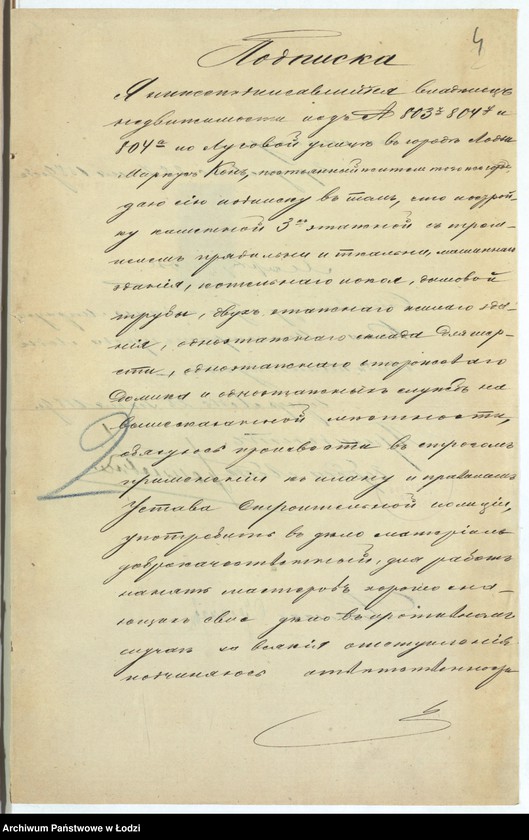 4
Подписка
Я нижеподписавшійся владѣлецъ
недвижимости подъ № 803ᶻ 804ᶻ и
804ᵃ по Лусовой улицѣ въ городѣ Лодзи
Маркусъ Конъ, постоянный житель того же города
даю сію подписку въ томъ, что постройку
ку каменной 3ᵉˣ этажной съ тром-
пелемъ прядильни и ткальни, машиннаго
зданія, котельнаго покоя, дымовой
трубы, двухъ этажнаго жилаго зда-
нія, одноэтажнаго склада для шер-
сти, одноэтажнаго сторожеваго
домика и одноэтажныхъ службъ на
вышесказанной мѣстности,
обязуюсь произвести въ строгомъ
примѣненіи къ плану и правиламъ
Устава Строительной полиціи,
употребить въ дѣло матеріалъ
доброкачественный, для работъ
нанять мастеровъ хорошо зна-
ющихъ свое дѣло въ противномъ
случаѣ за всякія отступленія
подчиняюсь отвѣтственности
Archiwum Państwowe w Łodzi